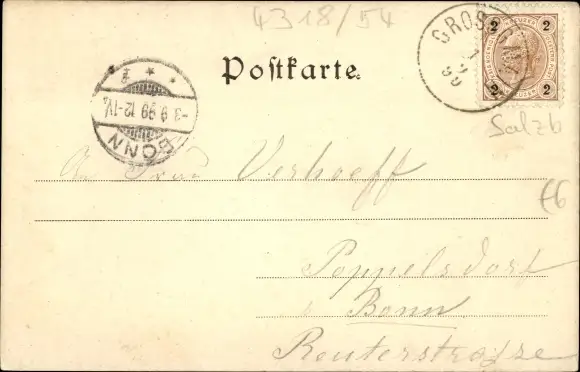 4318/54
GROS
1 9 99
2 2
2 2
Postkarte.
BONN
-3.9.99 12-1V.
Salzb
Verhoeff
£6
Poppelsdorf
Bonn
Reuterstrasze